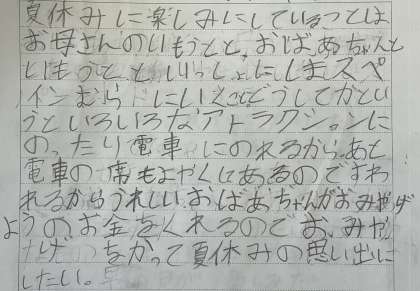 夏休みに楽しみにしていることは
お母さんのいもうとと、おばあちゃんと
いもうとといっしょにしまスペ
インむらにいくことどうしてかとい
うといろいろなアトラクションに
のったり電車にのれるから、あと
電車の席もよやくしてあるのですわ
れるからうれしい。おばあちゃんがおみやげ
ようのお金をくれるのでおみや
げをかって夏休みの思い出に
したい。